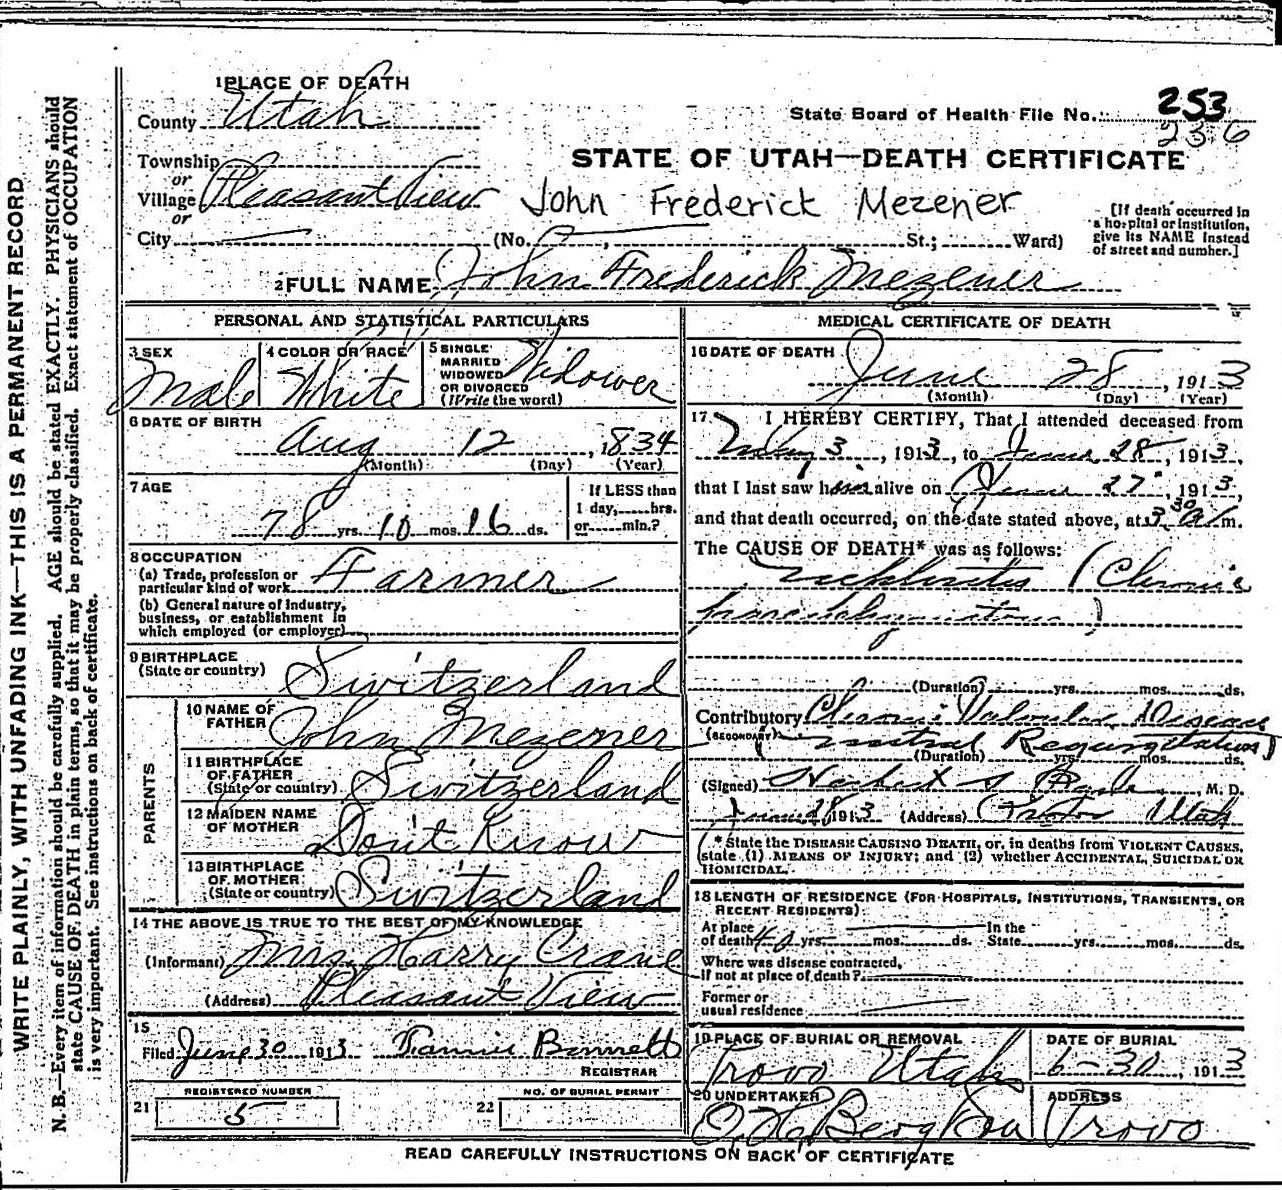 1 PLACE OF DEATH
County Utah
State Board of Health File No. 253
236
Township
or
Village Pleasant View
STATE OF UTAH—DEATH CERTIFICATE
John Frederick Mezener
or
City (No. , St.; Ward)
[If death occurred in
a hospital or institution,
give its NAME instead
of street and number.]
2 FULL NAME John Frederick Mezener
PERSONAL AND STATISTICAL PARTICULARS
3 SEX
Male
4 COLOR OR RACE
White
5 SINGLE
MARRIED
WIDOWED
OR DIVORCED
(Write the word)
Widower
6 DATE OF BIRTH
Aug 12, 1834
(Month) (Day) (Year)
7 AGE
78 yrs. 10 mos. 16 ds.
If LESS than
1 day, hrs.
or min.?
8 OCCUPATION
(a) Trade, profession or
particular kind of work Farmer
(b) General nature of industry,
business, or establishment in
which employed (or employer)
9 BIRTHPLACE
(State or country) Switzerland
PARENTS
10 NAME OF
FATHER John Mezener
11 BIRTHPLACE
OF FATHER
(State or country) Switzerland
12 MAIDEN NAME
OF MOTHER Don't Know
13 BIRTHPLACE
OF MOTHER
(State or country) Switzerland
14 THE ABOVE IS TRUE TO THE BEST OF MY KNOWLEDGE
(Informant) Mrs. Harry Crane
(Address) Pleasant View
15
Filed June 30 1913 Fannie Bennett
REGISTRAR
REGISTERED NUMBER
21 5
NO. OF BURIAL PERMIT
22
MEDICAL CERTIFICATE OF DEATH
16 DATE OF DEATH
June 28, 1913
(Month) (Day) (Year)
17 I HEREBY CERTIFY, That I attended deceased from
May 3, 1913, to June 28, 1913,
that I last saw him alive on June 27, 1913,
and that death occurred, on the date stated above, at 3 30 a/m.
The CAUSE OF DEATH* was as follows:
(Chronic
(Duration) yrs. mos. ds.
Contributory Chronic Valvular Disease
(SECONDARY) (mitral Regurgitation)
(Duration) yrs. mos. ds.
(Signed) M. D.
June 28 1913 (Address) Provo Utah
* State the DISEASE CAUSING DEATH, or, in deaths from VIOLENT CAUSES,
state (1) MEANS OF INJURY; and (2) whether ACCIDENTAL, SUICIDAL OR
HOMICIDAL.
18 LENGTH OF RESIDENCE (FOR HOSPITALS, INSTITUTIONS, TRANSIENTS, OR
RECENT RESIDENTS)
At place
of death 40 yrs. mos. ds.
In the
State yrs. mos. ds.
Where was disease contracted,
if not at place of death?
Former or
usual residence
19 PLACE OF BURIAL OR REMOVAL
Provo Utah
DATE OF BURIAL
6-30, 1913
20 UNDERTAKER
O. H. Berg & Son
ADDRESS
Provo
READ CAREFULLY INSTRUCTIONS ON BACK OF CERTIFICATE
WRITE PLAINLY, WITH UNFADING INK—THIS IS A PERMANENT RECORD
N. B.—Every item of information should be carefully supplied. AGE should be stated EXACTLY. PHYSICIANS should
state CAUSE OF DEATH in plain terms, so that it may be properly classified. Exact statement of OCCUPATION
is very important. See instructions on back of certificate.